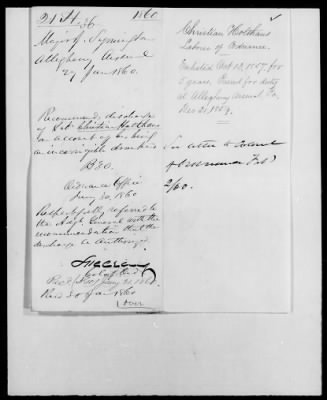 21 H 36 1860
Major J. Symington
Allegheny Arsenal
27 Jan 1860.
Recommends discharge
of Christian Holthaus
on account of his being
an incorrigible drunkard
Ordnance Office
Jany 30, 1860
Respectfully referred to
the Adjt. General with the
recommendation that the
discharge be authorized
Col. of Ord.
Jany 31, 1860
Recd 30 Jan 1860
1 over
Christian Holthaus
Laborer of Ordnance.
Enlisted Oct 13, 1857, for
5 years. Present for duty
at Allegheny Arsenal, Pa,
Dec 31, 1859.
See letter to Colonel
of Ordnance Feb
2/60.